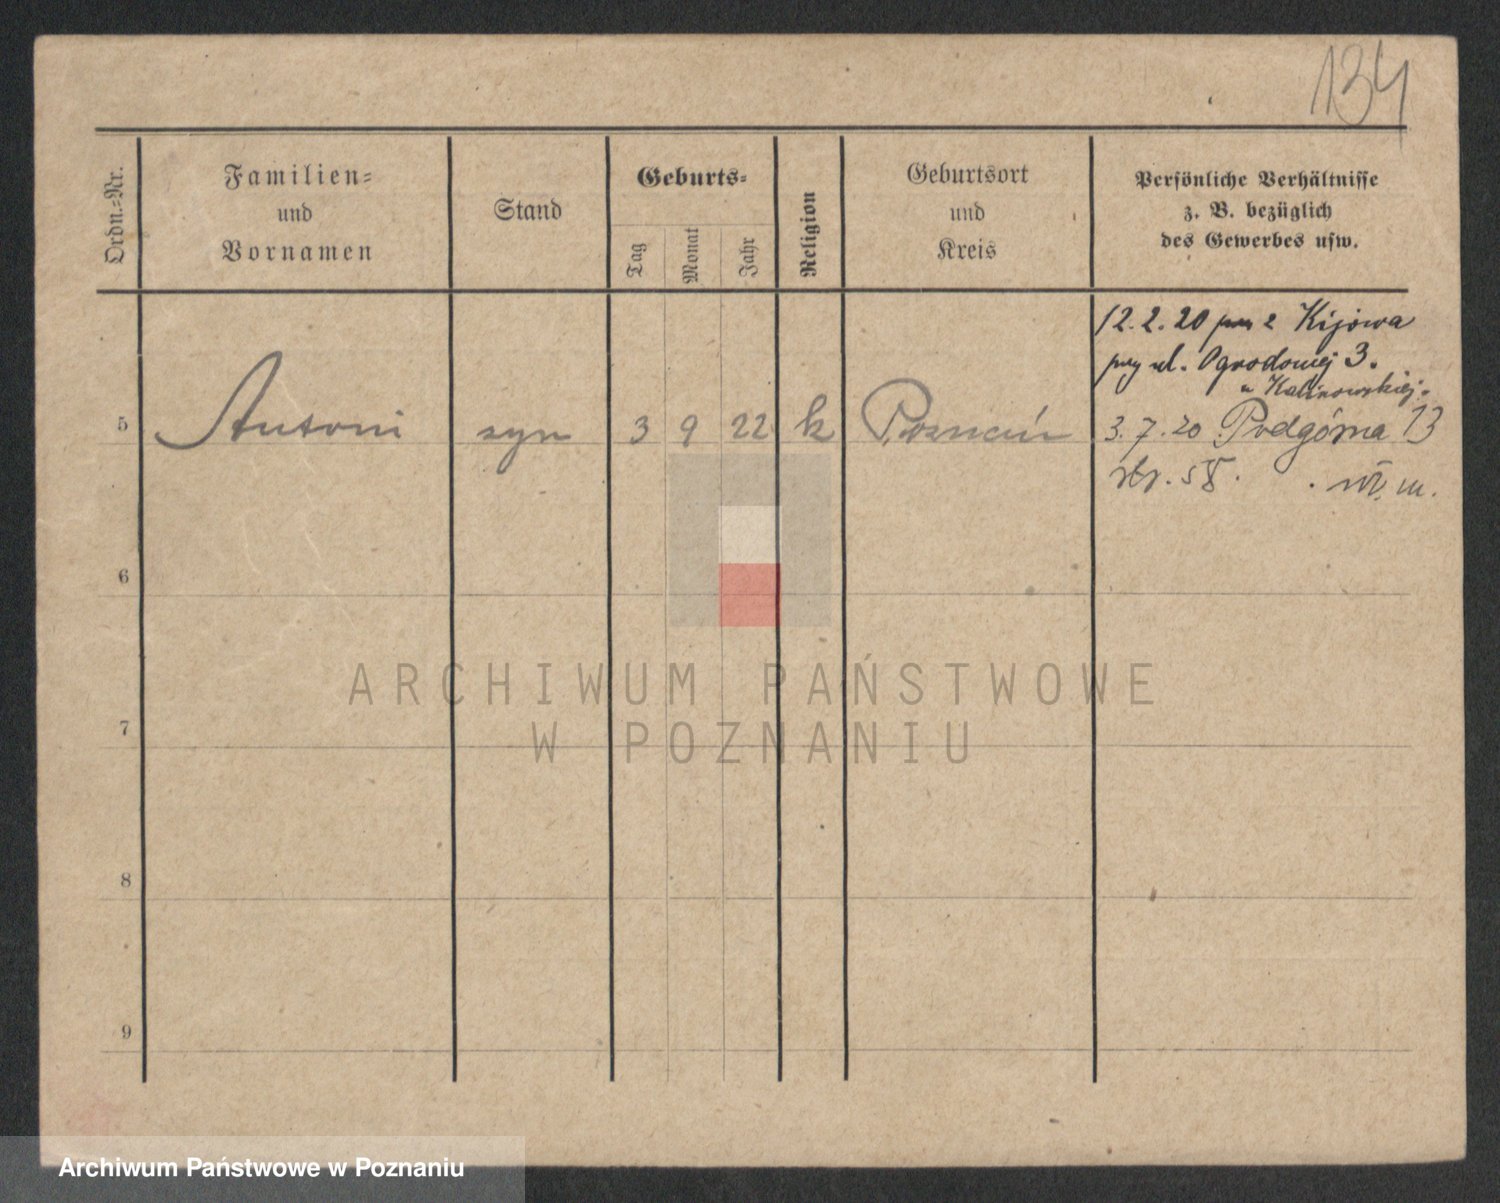 134
Ordn.=Nr.
Familien=
und
Vornamen
Stand
Geburts=
Tag
Monat
Jahr
Religion
Geburtsort
und
Kreis
Persönliche Verhältnisse
z. B. bezüglich
des Gewerbes usw.
12.2.20 z Kijowa
przy ul. Ogrodowej 3.
u Kalinowskiej.
5 Antoni syn 3 9 22 k Poznań 3.7.20 Podgórna 13
str. 58.
6
7
8
9
ARCHIWUM PAŃSTWOWE
W POZNANIU
Archiwum Państwowe w Poznaniu